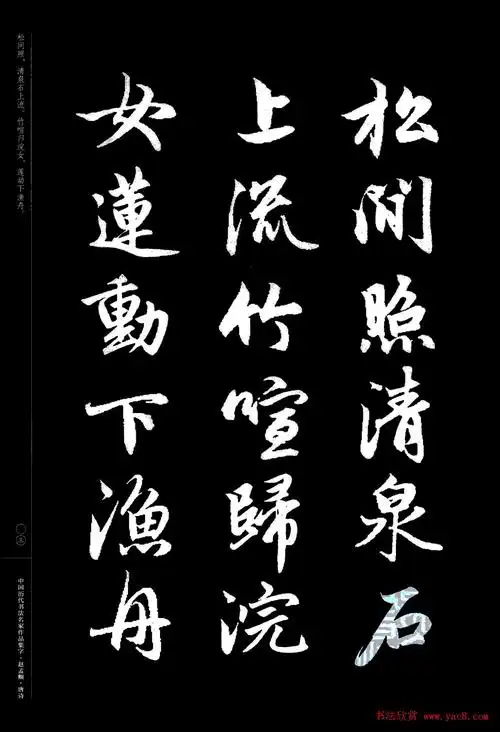 松間照清泉石
上流竹喧歸浣
女蓮動下漁舟
松间照。清泉石上流。竹喧归浣女。莲动下渔舟。
〇三
中国历代书法名家作品集字·赵孟頫·唐诗
书法欣赏 www.yac8.com